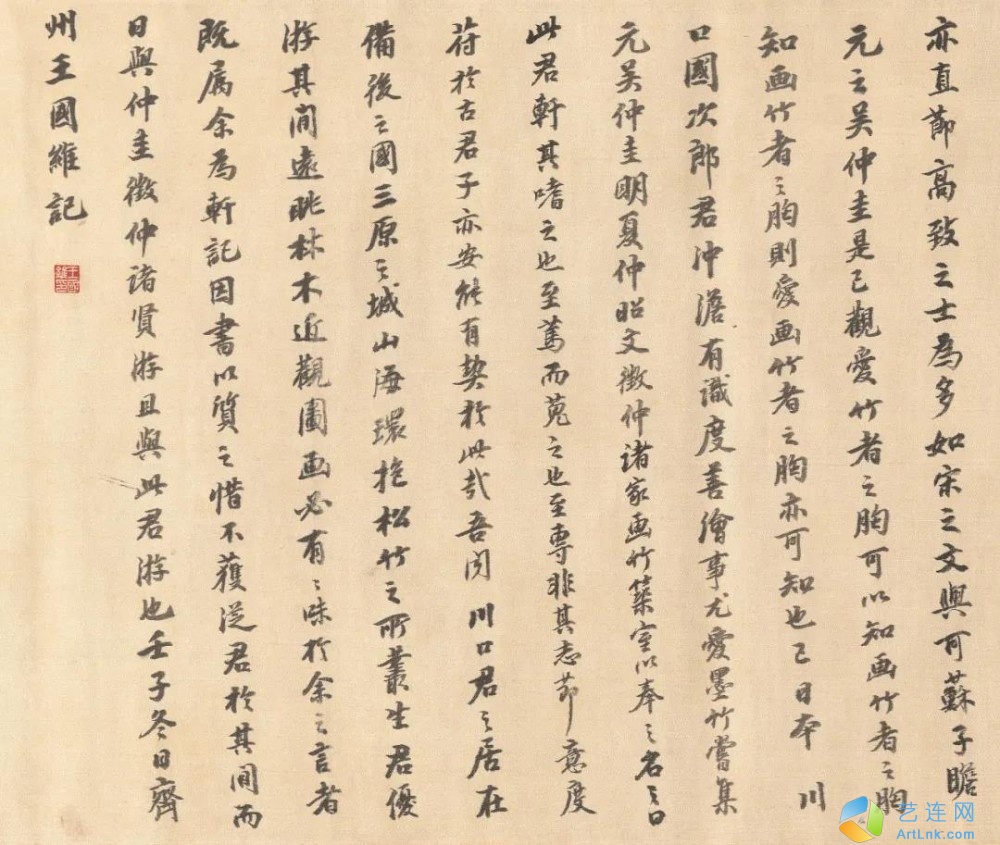 亦直節高致之士為多如宋之文與可蘇子瞻
元之吴仲圭是已觀愛竹者之胸可以知画竹者之胸
知画竹者之胸則愛画竹者之胸亦可知也已日本 川
口國次郎君沖澹有識度善繪事尤愛墨竹嘗集
元吴仲圭明夏仲昭文徵仲諸家画竹築室以奉之名之曰
此君軒其嗜之也至篤而蒐之也至專非其志節意度
符於古君子亦安能有契於此哉吾聞 川口君之居在
備後之國三原之城山海環抱松竹之所叢生君優
游其間遠眺林木近觀圖画必有〻味於余之言者
既属余為軒記因書以質之惜不獲從君於其間而
日與仲圭徵仲諸賢游且與此君游也壬子冬日齊
州王國維記
艺连网
ArtLnk.com